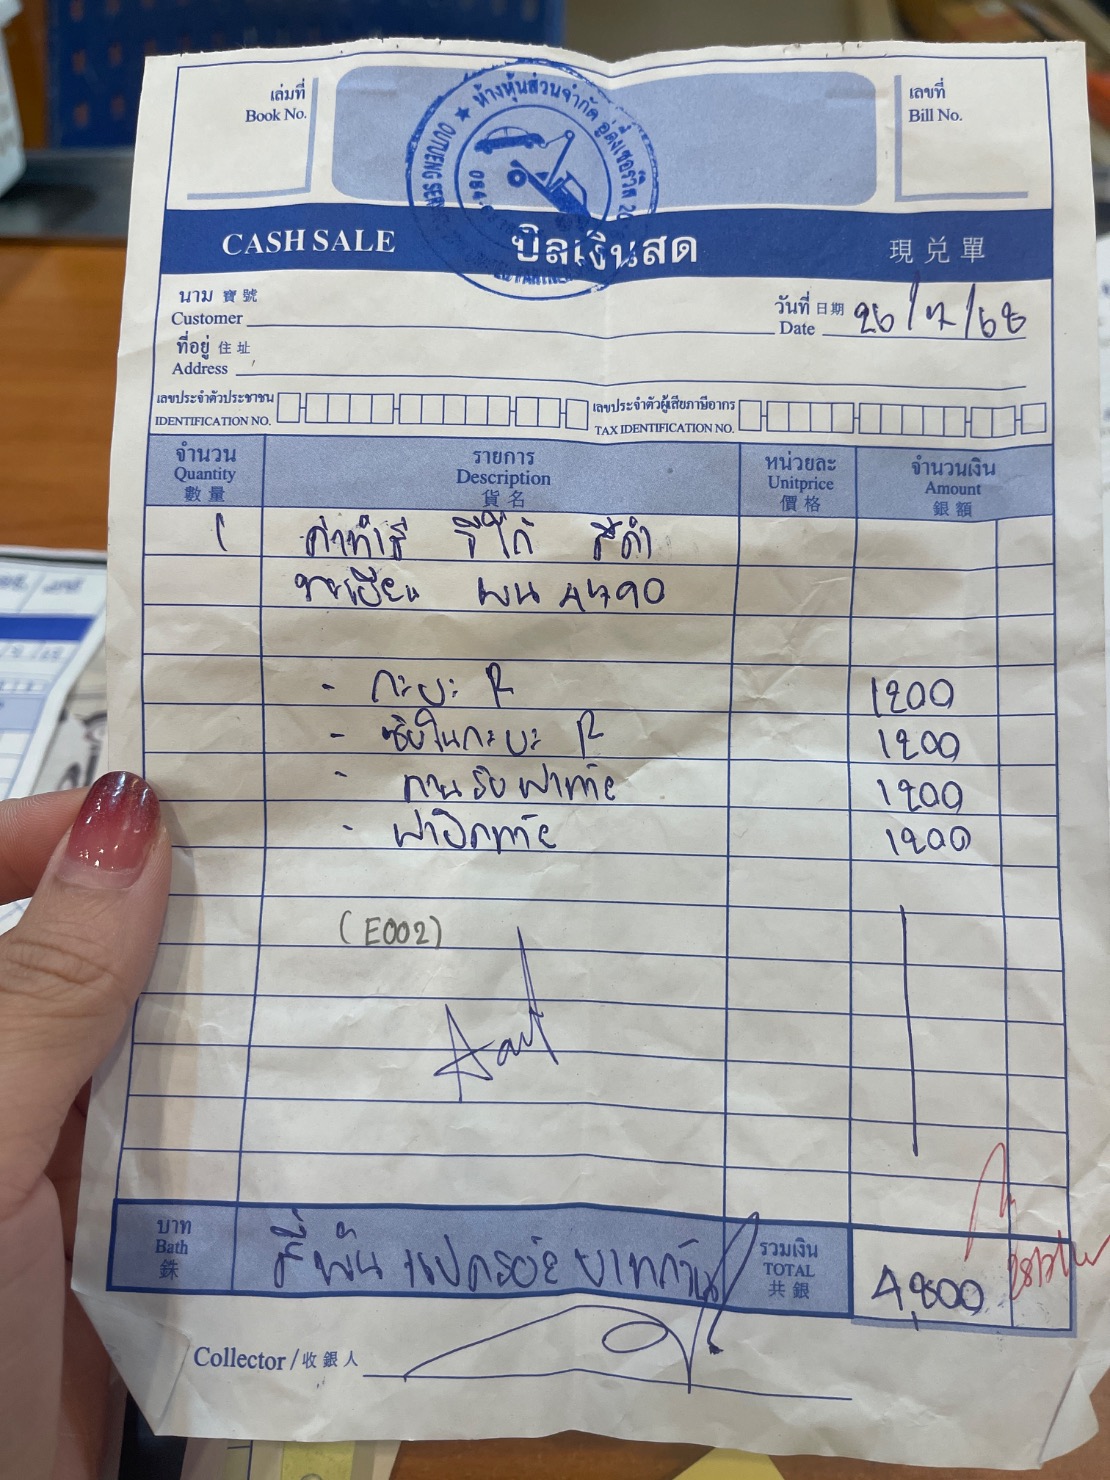 เล่มที่
Book No.
เลขที่
Bill No.
ห้างหุ้นส่วนจำกัด อู่ตึ๋งเซอร์วิส
CASH SALE
บิลเงินสด
現兌單
นาม 寶號
Customer
วันที่ 日期
Date
ที่อยู่ 住址
Address
เลขประจำตัวประชาชน
IDENTIFICATION NO.
เลขประจำตัวผู้เสียภาษีอากร
TAX IDENTIFICATION NO.
จำนวน
Quantity
數量
รายการ
Description
貨名
หน่วยละ
Unitprice
價格
จำนวนเงิน
Amount
銀額
1 ค่าทำสี รีโว้ สีดำ
ทะเบียน
- กะบะ R 1200
- ซุ้มในกะบะ R 1200
- คานรับฝาท้าย 1200
- ฝาปิดท้าย 1200
(E002)
บาท
Bath
銖
สี่พันแปดร้อยบาทถ้วน
รวมเงิน
TOTAL
共銀
4,800
Collector/收銀人